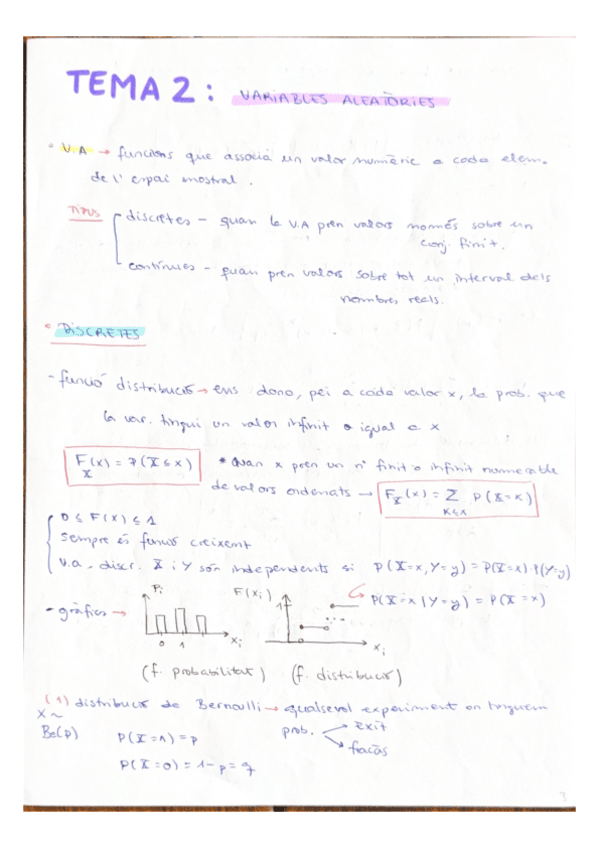 TEMA 2 : VARIABLES ALEATÒRIES
• V.A → funcions que associa un valor numèric a cada elem.
de l'espai mostral.
TIPUS
discretes - quan la V.A pren valors només sobre un
conj. finit.
contínues - quan pren valors sobre tot un interval dels
nombres reals.
• DISCRETES
- funció distribució → ens dona, per a cada valor x, la prob. que
la var. tingui un valor infinit o igual a x
F_X(x) = P(X ≤ x)
• Quan x pren un nº finit o infinit numerable
de valors ordenats → F_X(x) = Σ_{K≤x} P(X=K)
0 ≤ F(x) ≤ 1
Sempre és funció creixent
V.a. discr. X i Y són independents si P(X=x, Y=y) = P(X=x)·P(Y=y)
P(X=x | Y=y) = P(X=x)
- gràfics →
Pi
0 1
xi
F(xi)
1
0
xi
(f. probabilitat) (f. distribució)
(1) distribució de Bernoulli → qualsevol experiment on tinguem
X ~
Be(p)
prob.
èxit
fracàs
P(X=1) = p
P(X=0) = 1-p = q
3